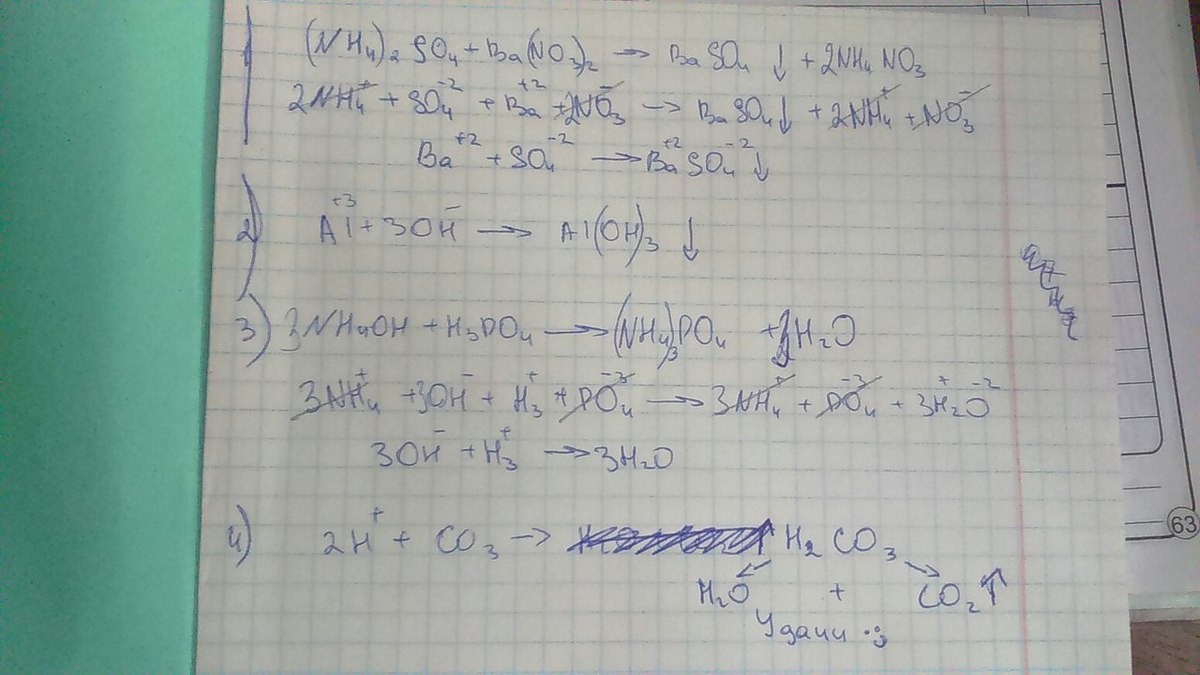 (NH₄)₂SO₄ + Ba(NO₃)₂ → BaSO₄ ↓ + 2NH₄NO₃
2NH₄⁺ + SO₄⁻² + Ba⁺² + 2NO₃⁻ → BaSO₄↓ + 2NH₄⁺ + NO₃⁻
Ba⁺² + SO₄⁻² → Ba⁺²SO₄⁻²↓
2) Al⁺³ + 3OH⁻ → Al(OH)₃ ↓
3) 3NH₄OH + H₃PO₄ → (NH₄)₃PO₄ + 3H₂O
3NH₄⁺ + 3OH⁻ + H₃⁺ + PO₄⁻³ → 3NH₄⁺ + PO₄⁻³ + 3H₂⁺O⁻²
3OH⁻ + H₃⁺ → 3H₂O
4) 2H⁺ + CO₃ → H₂CO₃
H₂O + CO₂↑
Удачи :3
63